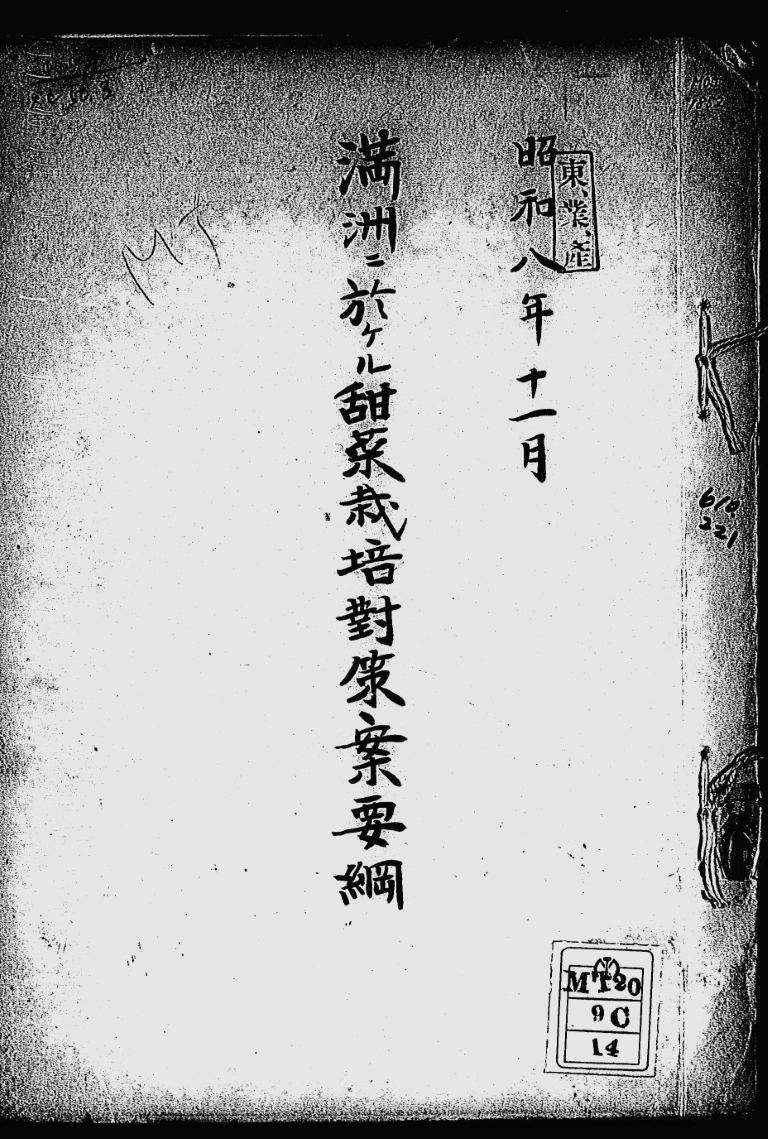 昭和八年十一月
東、業、産
満洲ニ於ケル甜菜栽培對策案要綱
MT
610
221
MT20
9C
14